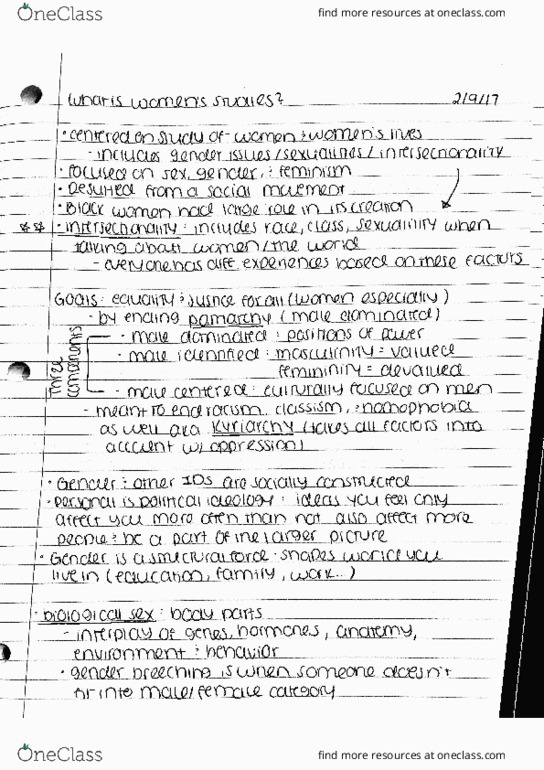 OneClass find more resources at oneclass.com
What is women's studies? 2/9/17
· centered on study of women & women's lives
- includes gender issues/sexualities/intersectionality
· focused on sex, gender, & feminism
· Resulted from a social movement
· Black women had large role in its creation
** · intersectionality: includes race, class, sexuality when
talking about women/the world
- everyone has diff. experiences based on these factors
Goals: equality & justice for all (women especially)
- by ending patriarchy (male dominated)
Three components
- male dominated: positions of power
- male identified: masculinity = valued
femininity = devalued
- male centered: culturally focused on men
- meant to end racism, classism, & homophobia
as well aka Kyriarchy (takes all factors into
account w/ oppression)
· Gender & other IDs are socially constructed
· personal is political ideology: ideas you feel only
affect you more often than not also affect more
people & be a part of the larger picture
· Gender is a structural force · shapes world you
live in (education, family, work...)
· biological sex: body parts
- interplay of genes, hormones, anatomy,
environment & behavior
· gender breeching is when someone doesn't
fit into male/female category
OneClass find more resources at oneclass.com